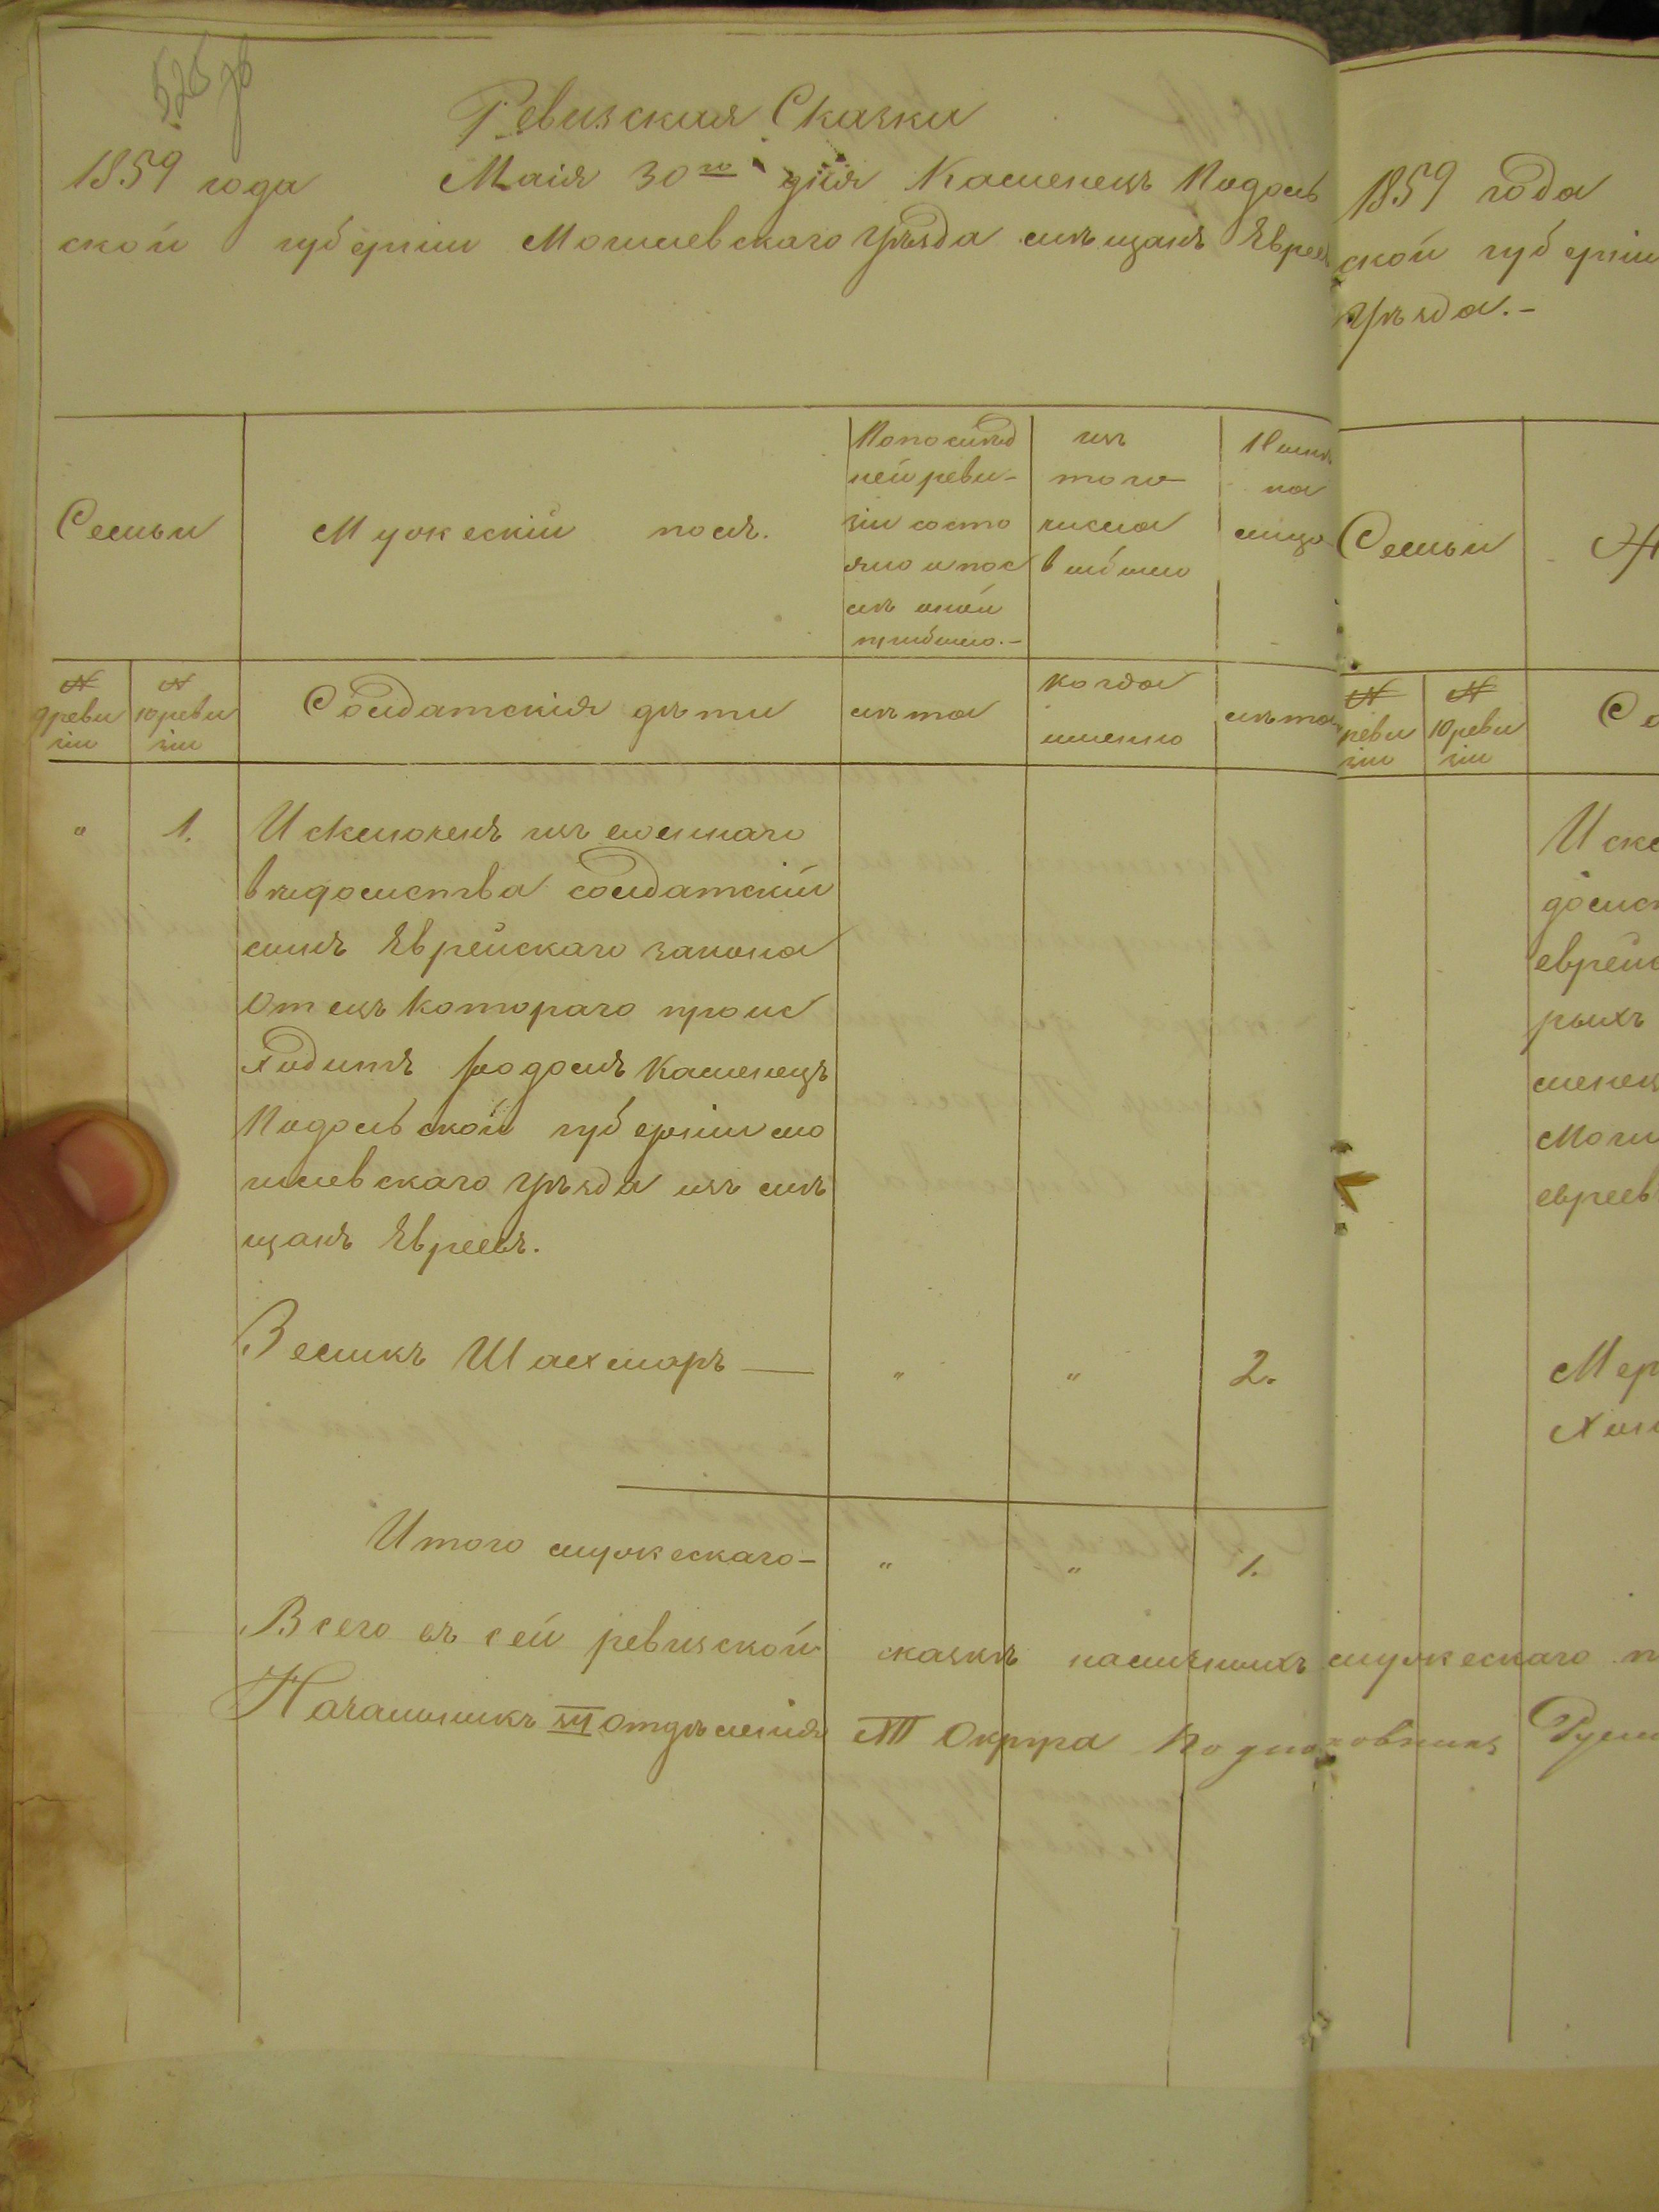 Ревизская Сказки
1859 года Маія 30го дня Каменецъ Подоль
ской губерніи Могилевскаго Уѣзда мѣщанъ Евреев
Семьи
Мужескій полъ.
По послѣд
ней реви-
зіи состо
яло и пос
лѣ оной
прибыло.-
изъ
того
числа
выбыло
Нынѣ
на
лицо
№
9 реви
зіи
№
10 реви
зіи
Солдатскія дѣти
лѣта
когда
именно
лѣта
" 1. Исключенъ изъ военнаго
вѣдомства солдатскій
сынъ Еврейскаго закона
отецъ котораго проис
ходитъ родомъ Каменецъ
Подольской губерніи мо
гилевскаго Уѣзда изъ мѣ
щанъ Евреевъ.
Зеликъ Шлехмаръ — " " 2.
Итого мужескаго - " " 1.
Всего въ сей ревизской сказкѣ наличныхъ мужескаго п
Начальникъ III отдѣленія Округа Подполковникъ
1859 года
ской губерніи
Уѣзда.-
Семьи
№
реви
зіи
№
10 реви
зіи
Со
Искл
домст
еврейс
рыхъ
менец
Моги
евреев
Мер
Хан